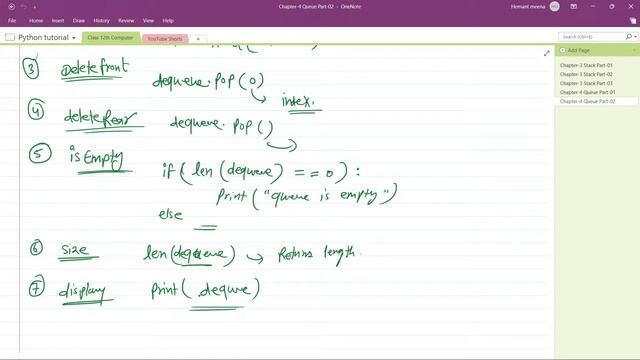 Chapter-4 Queue Part-02 - OneNote
Hemant meena
File Home Insert Draw History Review View Help
Python tutorial
Class 12th Computer
YouTube Shorts
Search (Ctrl+E)
Add Page
Chapter-3 Stack Part-01
Chapter-3 Stack Part-02
Chapter-3 Stack Part-03
Chapter-4 Queue Part-01
Chapter-4 Queue Part-02
③ Deletefront dequeue.pop(0)
index.
④ deleteRear dequeue.pop()
⑤ isEmpty if(len(dequeue)==0):
print("queue is empty")
else
⑥ Size len(dequeue) → Returns length.
⑦ display print(dequeue)